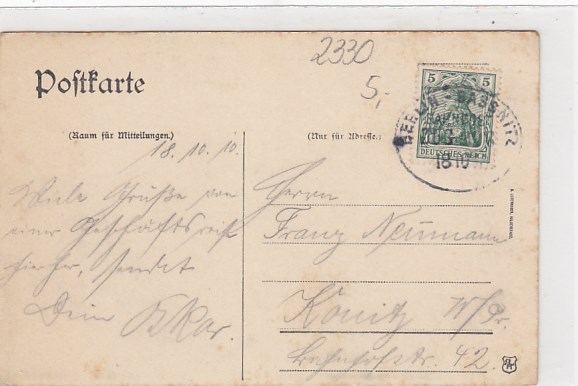 2330
5,-
Postkarte
(Raum für Mitteilungen.)
(Nur für Adresse.)
5 5
DEUTSCHES REICH
BERLIN SASSNITZ
BAHNPOST
18 10
18. 10. 10.
Viele Grüße von
einer Geschäftsreise
hierher, sendet
Dein Oskar.
Herrn
Franz Neumann
Könitz W/Pr.
Bahnhofstr. 42.